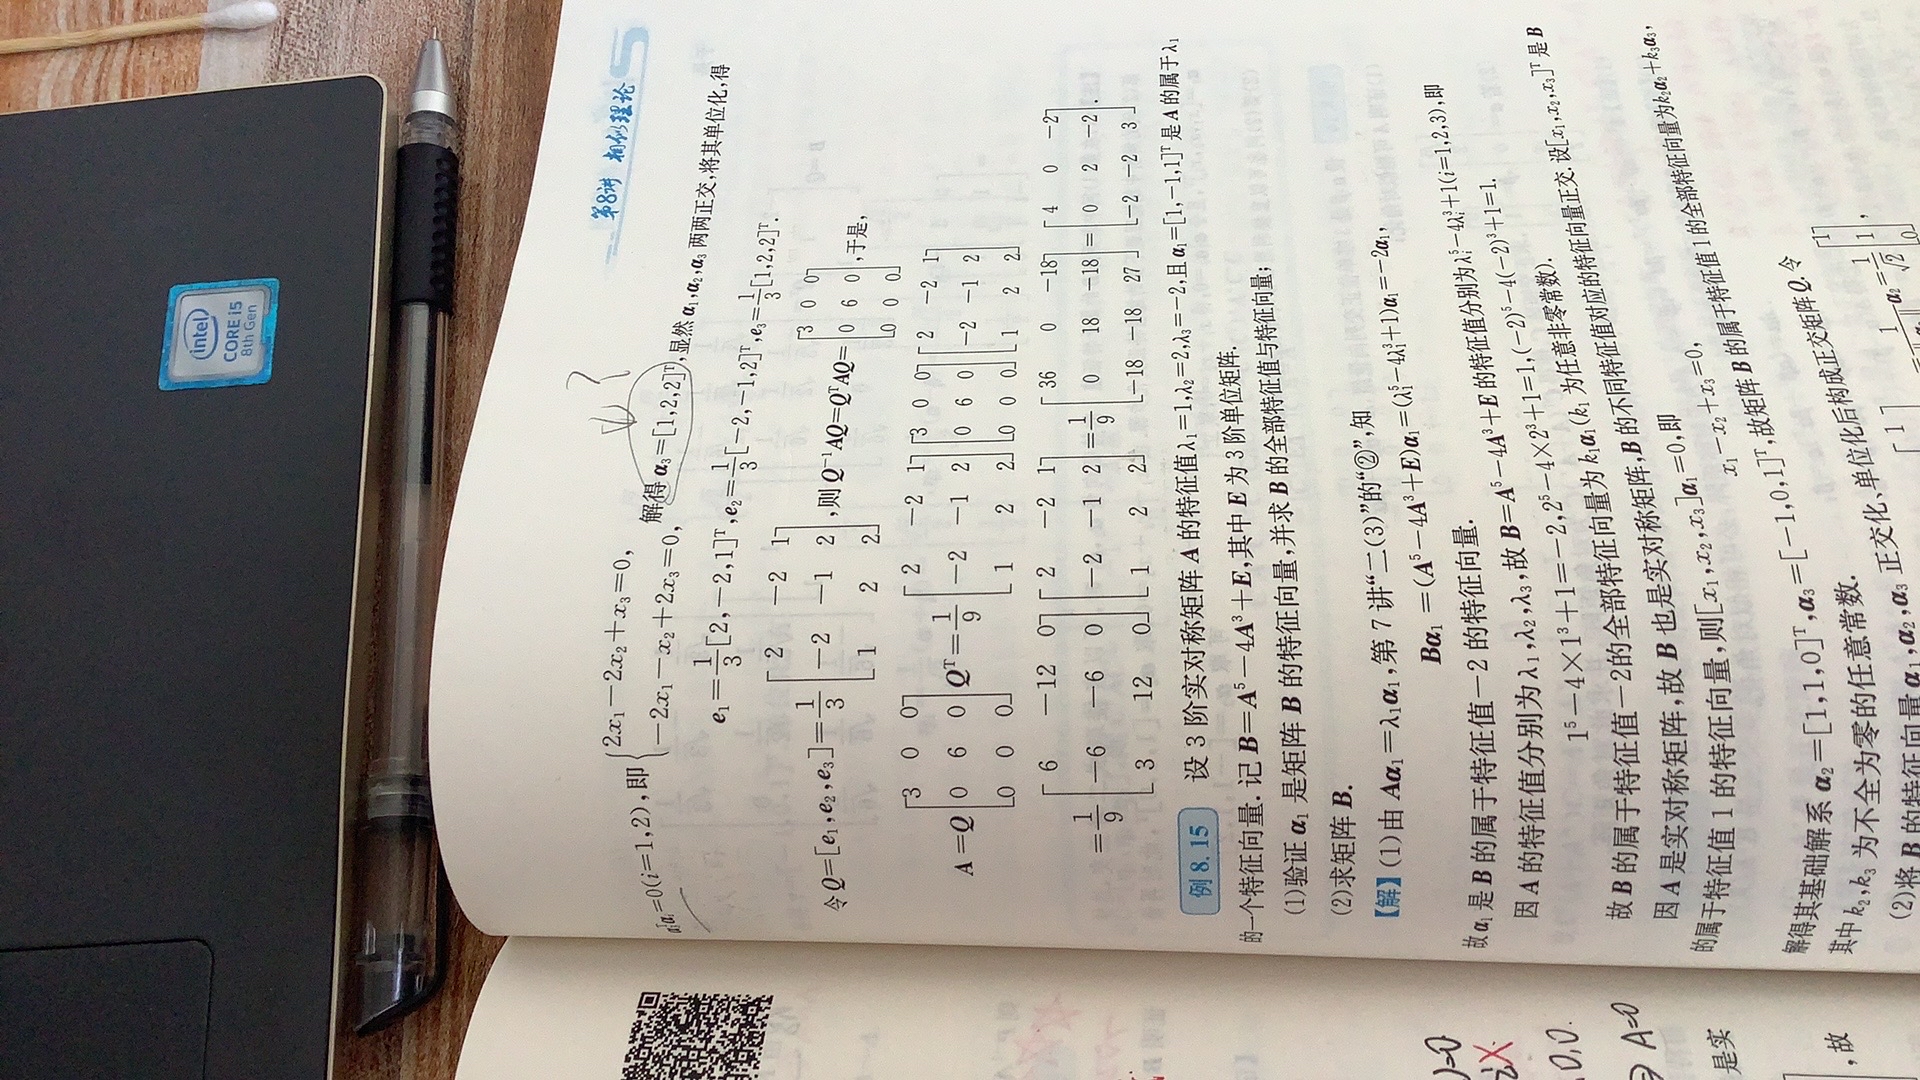 intel
CORE i5
8th Gen
第8讲 相似理论
?
αᵢᵀα₃=0(i=1,2),即 {2x₁−2x₂+x₃=0, −2x₁−x₂+2x₃=0, 解得α₃=[1,2,2]ᵀ,显然α₁,α₂,α₃两两正交,将其单位化,得
e₁=1/3[2,−2,1]ᵀ,e₂=1/3[−2,−1,2]ᵀ,e₃=1/3[1,2,2]ᵀ.
令Q=[e₁,e₂,e₃]=1/3[2 −2 1; −2 −1 2; 1 2 2],则Q⁻¹AQ=QᵀAQ=[3 0 0; 0 6 0; 0 0 0],于是,
A=Q[3 0 0; 0 6 0; 0 0 0]Qᵀ=1/9[2 −2 1; −2 −1 2; 1 2 2][3 0 0; 0 6 0; 0 0 0][2 −2 1; −2 −1 2; 1 2 2]
=1/9[6 −12 0; −6 −6 0; 3 12 0][2 −2 1; −2 −1 2; 1 2 2]=1/9[36 0 −18; 0 18 −18; −18 −18 27]=[4 0 −2; 0 2 −2; −2 −2 3].
例8.15 设3阶实对称矩阵A的特征值λ₁=1,λ₂=2,λ₃=−2,且α₁=[1,−1,1]ᵀ是A的属于λ₁
的一个特征向量.记B=A⁵−4A³+E,其中E为3阶单位矩阵.
(1)验证α₁是矩阵B的特征向量,并求B的全部特征值与特征向量;
(2)求矩阵B.
【解】(1)由Aα₁=λ₁α₁,第7讲“二(3)”的“②”,知
Bα₁=(A⁵−4A³+E)α₁=(λ₁⁵−4λ₁³+1)α₁=−2α₁,
故α₁是B的属于特征值−2的特征向量.
因A的特征值分别为λ₁,λ₂,λ₃,故B=A⁵−4A³+E的特征值分别为λᵢ⁵−4λᵢ³+1(i=1,2,3),即
1⁵−4×1³+1=−2,2⁵−4×2³+1=1,(−2)⁵−4(−2)³+1=1.
故B的属于特征值−2的全部特征向量为k₁α₁(k₁为任意非零常数).
因A是实对称矩阵,故B也是实对称矩阵,B的不同特征值对应的特征向量正交.设[x₁,x₂,x₃]ᵀ是B
的属于特征值1的特征向量,则[x₁,x₂,x₃]α₁=0,即
x₁−x₂+x₃=0,
解得其基础解系α₂=[1,1,0]ᵀ,α₃=[−1,0,1]ᵀ,故矩阵B的属于特征值1的全部特征向量为k₂α₂+k₃α₃,
其中k₂,k₃为不全为零的任意常数.
(2)将B的特征向量α₁,α₂,α₃正交化、单位化后构成正交矩阵Q.令
=0
0,0.
⇒ A=0
是实
,故